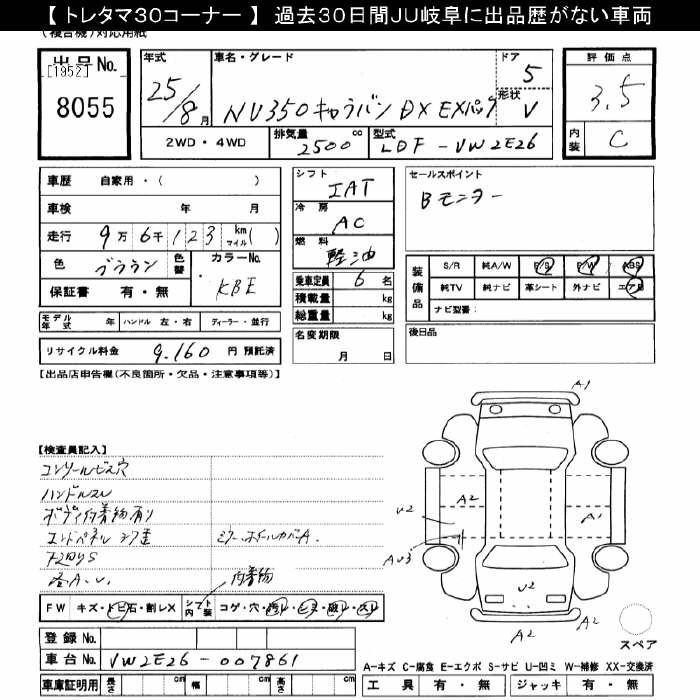 【トレタマ30コーナー】 過去30日間JU岐阜に出品歴がない車両
(複合機)対応用紙
出品No.
[1952]
8055
年式
25/8月
車名・グレード
NV350キャラバン DX EXパック
ドア
5
形状
V
評価点
3.5
内装
C
2WD・4WD
排気量
2500cc
型式
LDF-VW2E26
車歴 自家用・( )
車検 年 月
走行 9万6千123 km マイル( )
色 ブラウン
色替
カラーNo.
KBE
保証書 有・無
シフト
IAT
冷房
AC
燃料
軽油
乗車定員 6名
積載量 kg
総重量 kg
名変期限
月 日
セールスポイント
Bモニター
装備品
S/R 純A/W P/S P/W ABS
純TV 純ナビ 革シート 外ナビ エアB
ナビ型番:
後日品
モデル年式 年 ハンドル 左・右 ディーラー・並行
リサイクル料金 9.160 円 預託済
【出品店申告欄(不良箇所・欠品・注意事項等)】
【検査員記入】
コンソールビス穴
ハンドルスレ
ボディ付着物有り
エンドパネル
ミラー、ホイルカバA.
下回りS
A.U.
内着物
FW キズ・トビ石・割レX
シフト内装
コゲ・穴
登録No.
車台No. VW2E26-007861
車庫証明用 長さ cm 幅 cm 高さ cm
A1
A2
U2
A1
AU3
U2
A2
A2
スペア
A-キズ C-腐食 E-エクボ S-サビ U-凹ミ W-補修 XX-交換済
工具 有・無 ジャッキ 有・無